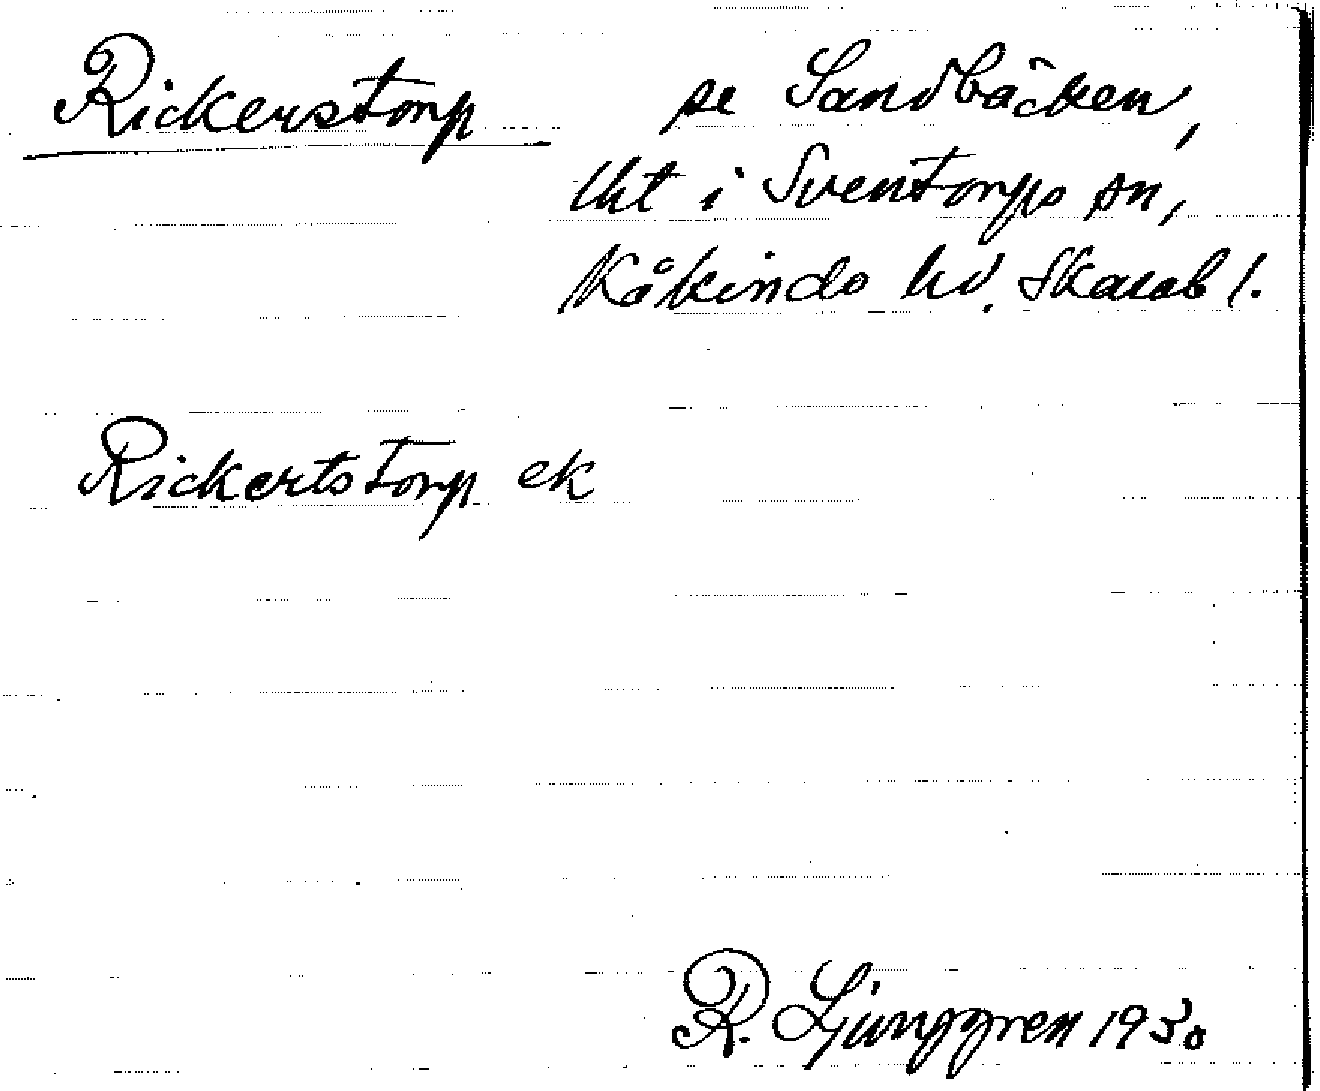 Rickerstorp se Sandbäcken,
lht i Sventorps sn,
Kåkinds hd. Skarab l.
Rickertstorp ek
R. Ljunggren 1930